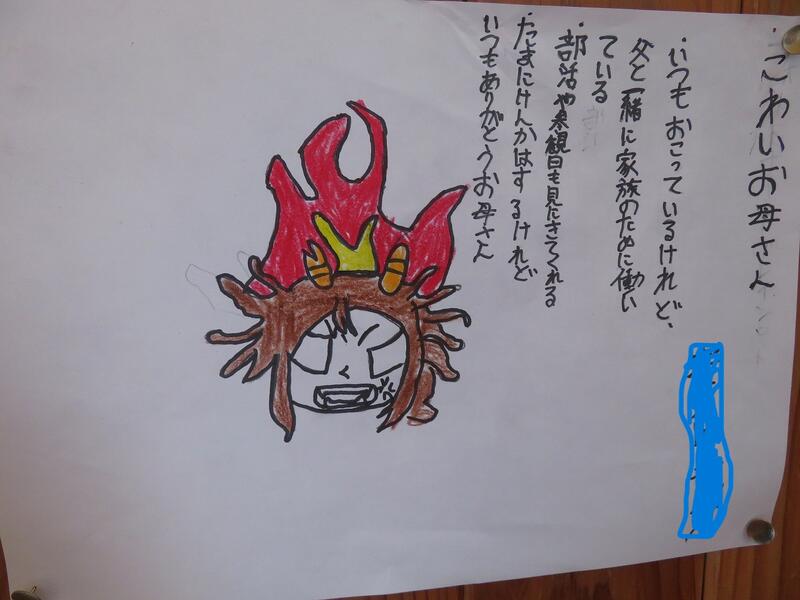 ・こわいお母さん
・いつもおこっているけれど、
父と一緒に家族のために働い
ている
・部活や参観日も見にきてくれる
・たまにけんかはするけれど
いつもありがとうお母さん